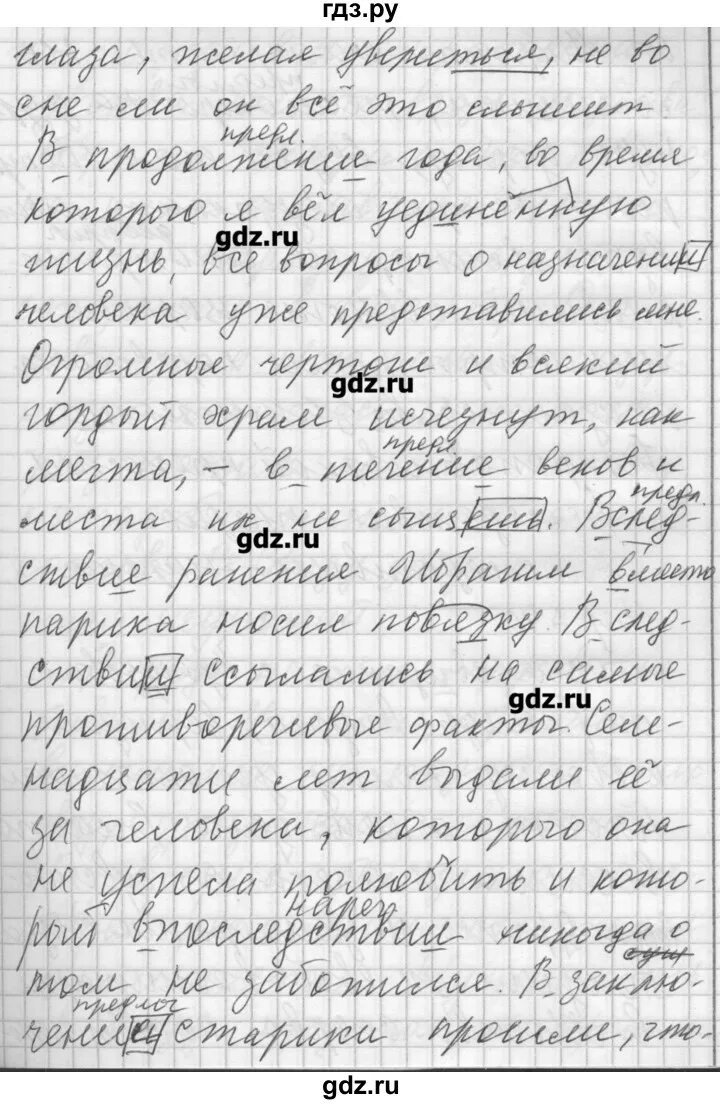 гдз.ру
глаза, желая увериться, не во
сне ли он всё это слышит.
предл.
В продолжение года, во время
которого я вёл уединённую
gdz.ru
жизнь, все вопросы о назначении
человека уже представились мне.
Огромные чертоги и всякий
gdz.ru
гордый храм исчезнут, как
предл
мечта, – в течение веков и
предл.
места их не сыщешь. Вслед-
gdz.ru
ствие ранения Ибрагим вместо
парика носил повязку. В след-
ствии ссылались на самые
gdz.ru
противоречивые факты. Сем-
надцати лет выдали её
за человека, которого она
не успела полюбить и кото-
нареч
рый впоследствии никогда о
сущ
том не заботился. В заклю-
предлог
чении старики просили, что-
gdz.ru